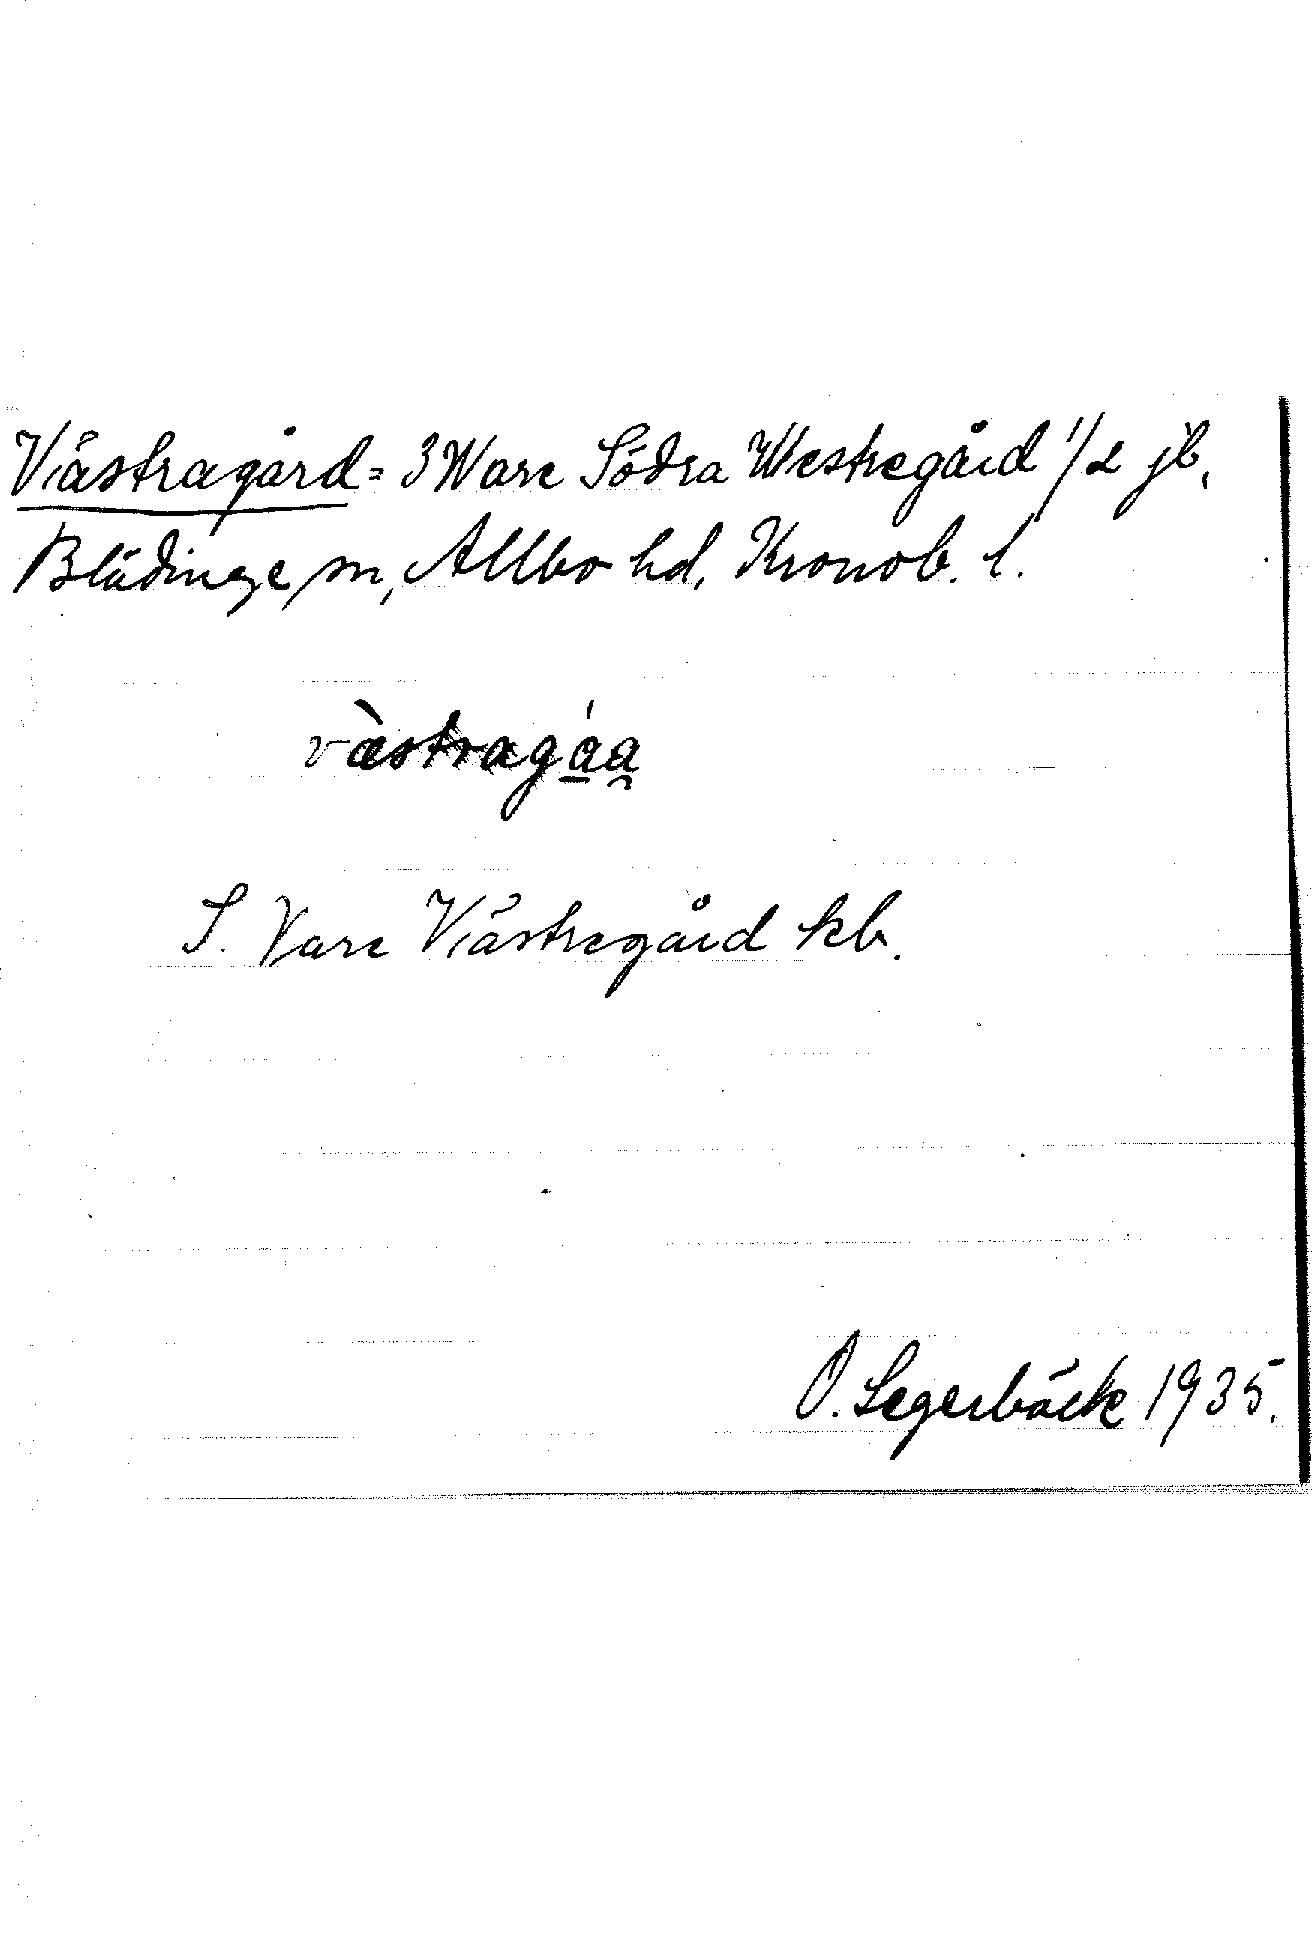 Västragård = 3 Ware Södra Westregård 1/2 jb.
Blädinge sn, Allbo hd, Kronob. l.
væ̀stragáa
S. Vare Västregård kb.
O. Segerbäck 1935.